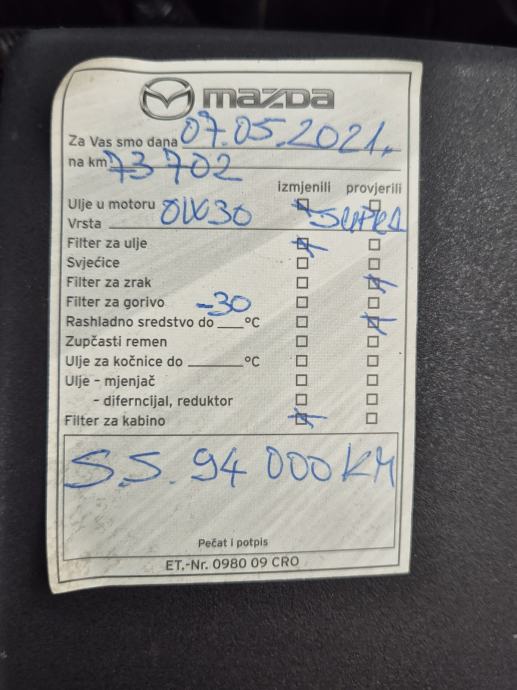 mazda
Za Vas smo dana 07.05.2021.
na km 73 702
izmjenili provjerili
Ulje u motoru 0W30 SUPRA
Vrsta
Filter za ulje
Svjećice
Filter za zrak
Filter za gorivo
Rashladno sredstvo do -30 °C
Zupčasti remen
Ulje za kočnice do ____ °C
Ulje - mjenjač
- diferncijal, reduktor
Filter za kabino
S.S. 94 000 KM
Pečat i potpis
ET.-Nr. 0980 09 CRO